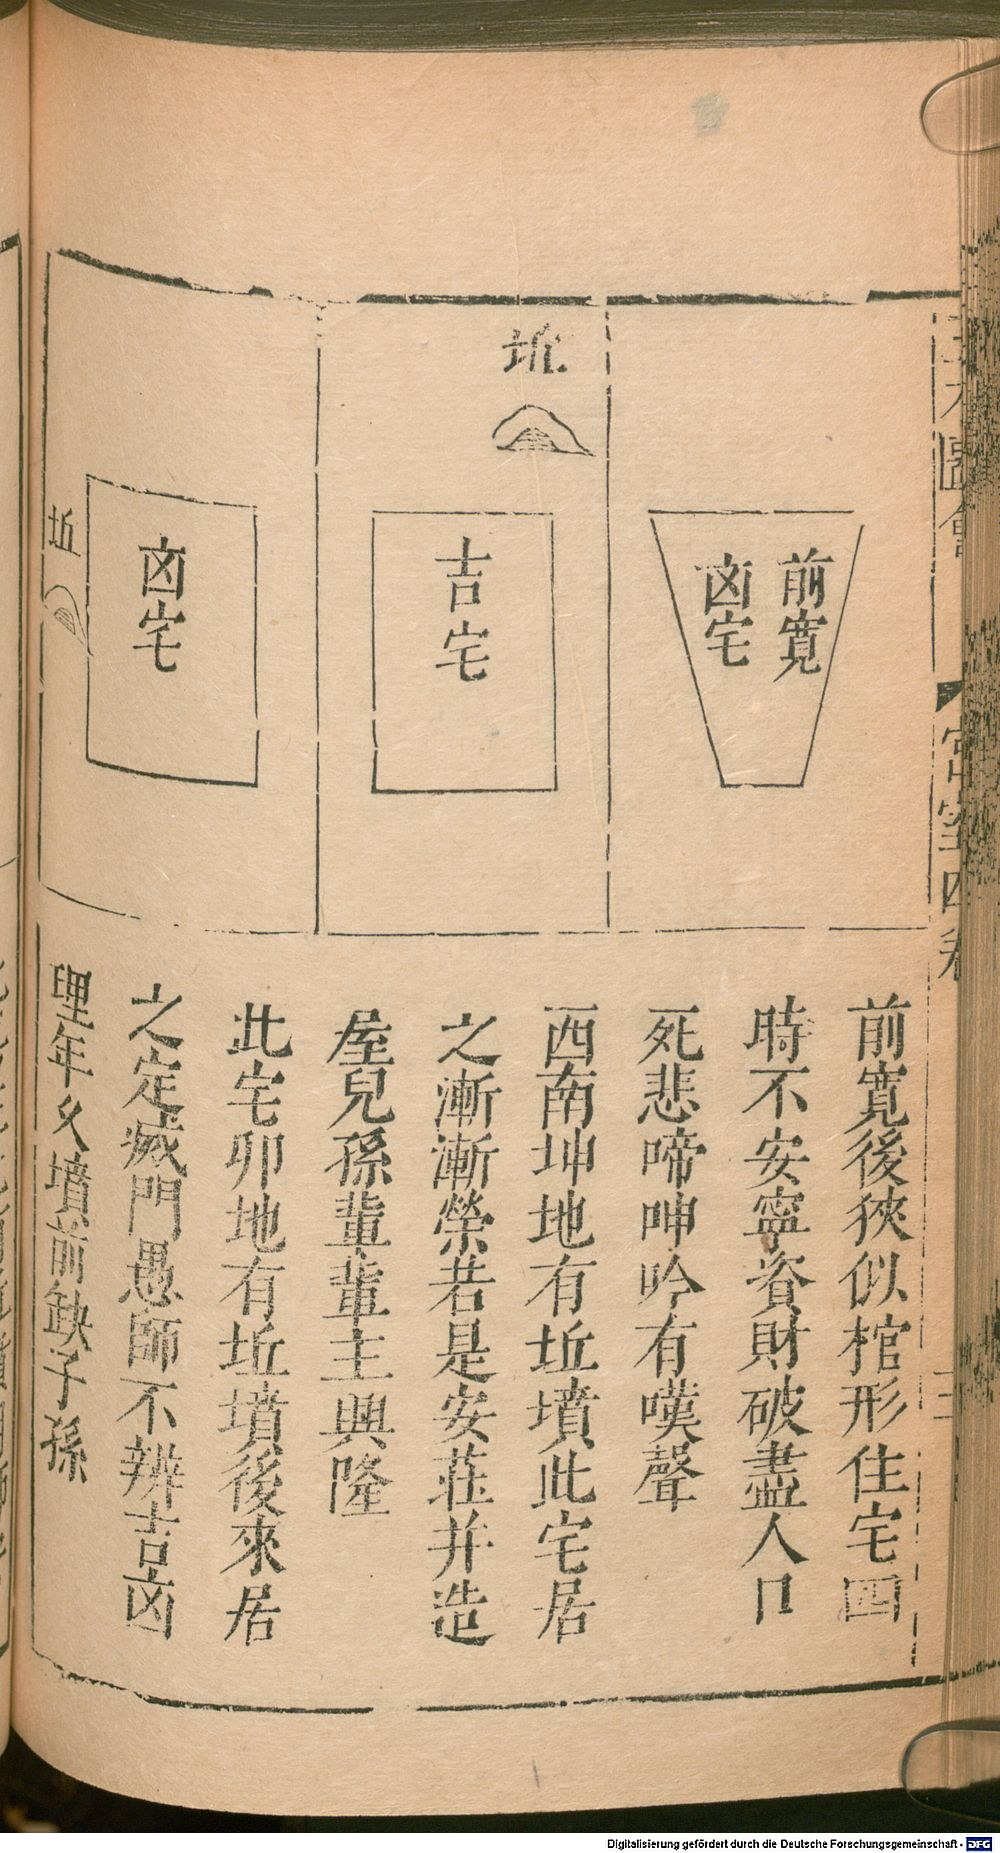 三才圖會
宮室四卷
前寬
凶宅
坵
吉宅
凶宅
坵
前寬後狹似棺形住宅四
時不安寧資財破盡人口
死悲啼呻吟有嘆聲
西南坤地有坵墳此宅居
之漸漸榮若是安莊并造
屋兒孫輩輩主興隆
此宅卯地有坵墳後來居
之定滅門愚師不辨吉凶
理年久墳前缺子孫
Digitalisierung gefördert durch die Deutsche Forschungsgemeinschaft - DFG